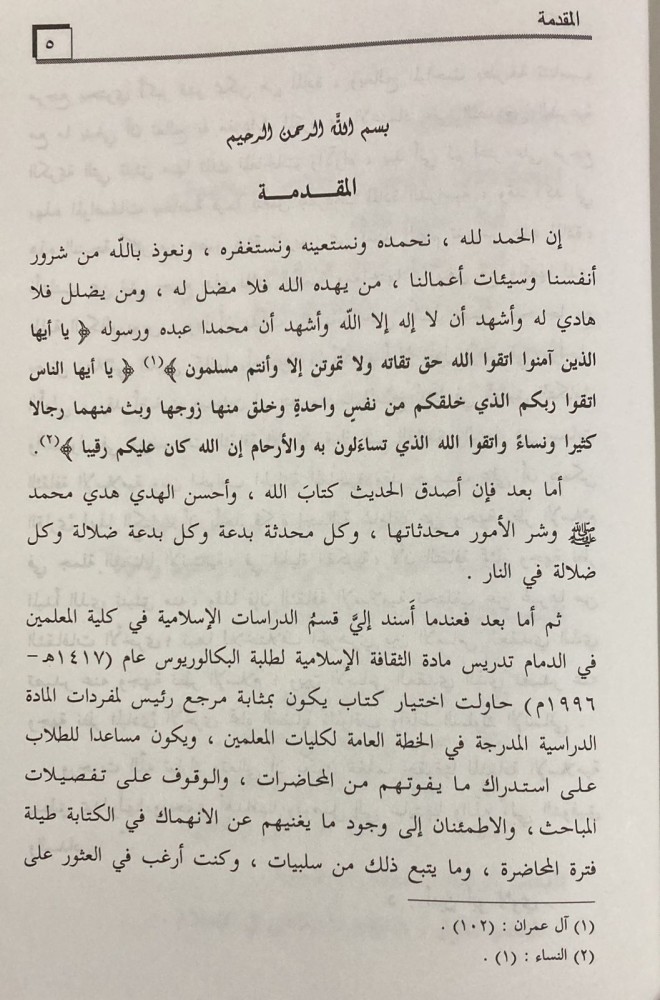 المقدمة
٥
بسم الله الرحمن الرحيم
المقدمة
إن الحمد لله ، نحمده ونستعينه ونستغفره ، ونعوذ بالله من شرور
أنفسنا وسيئات أعمالنا ، من يهده الله فلا مضل له ، ومن يضلل فلا
هادي له وأشهد أن لا إله إلا الله وأشهد أن محمدا عبده ورسوله ﴿ يا أيها
الذين آمنوا اتقوا الله حق تقاته ولا تموتن إلا وأنتم مسلمون ﴾(١) ﴿ يا أيها الناس
اتقوا ربكم الذي خلقكم من نفسٍ واحدةٍ وخلق منها زوجها وبث منهما رجالا
كثيرا ونساءً واتقوا الله الذي تساءَلون به والأرحام إن الله كان عليكم رقيبا ﴾(٢).
أما بعد فإن أصدق الحديث كتابَ الله ، وأحسن الهدي هدي محمد
ﷺ وشر الأمور محدثاتها ، وكل محدثة بدعة وكل بدعة ضلالة وكل
ضلالة في النار .
ثم أما بعد فعندما أَسند إليَّ قسمُ الدراسات الإسلامية في كلية المعلمين
في الدمام تدريس مادة الثقافة الإسلامية لطلبة البكالوريوس عام (١٤١٧هـ –
١٩٩٦م) حاولت اختيار كتاب يكون بمثابة مرجع رئيس لمفردات المادة
الدراسية المدرجة في الخطة العامة لكليات المعلمين ، ويكون مساعدا للطلاب
على استدراك ما يفوتهم من المحاضرات ، والوقوف على تفصيلات
المباحث، والاطمئنان إلى وجود ما يغنيهم عن الانهماك في الكتابة طيلة
فترة المحاضرة ، وما يتبع ذلك من سلبيات ، وكنت أرغب في العثور على
(١) آل عمران : (١٠٢) .
(٢) النساء : (١) .